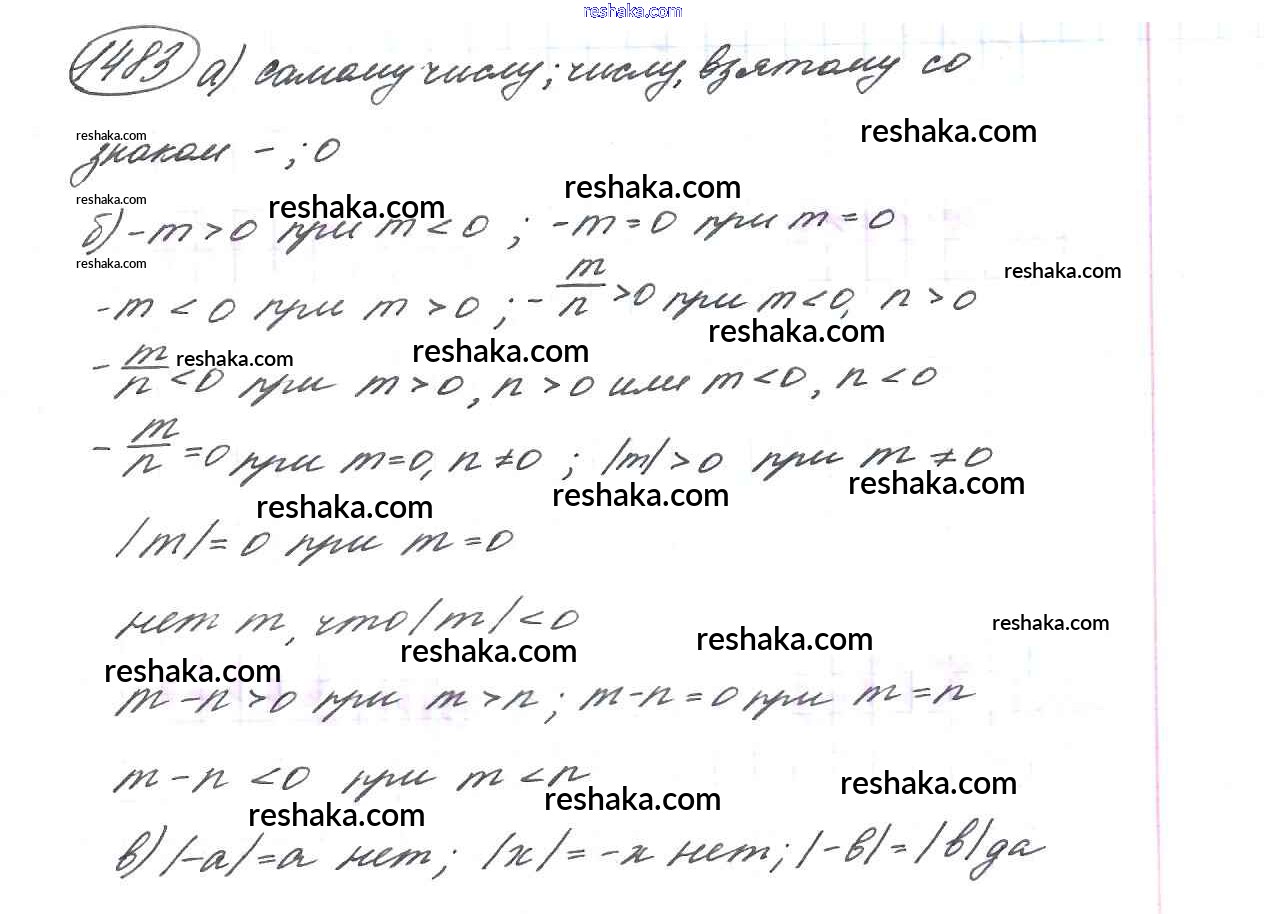 reshaka.com
1483 а) самому числу; числу, взятому со
reshaka.com
reshaka.com
знаком - ; 0
reshaka.com
reshaka.com
reshaka.com
б) -m > 0 при m < 0 ; -m = 0 при m = 0
reshaka.com
reshaka.com
-m < 0 при m > 0 ; - m/n > 0 при m < 0, n > 0
reshaka.com
reshaka.com
reshaka.com
- m/n < 0 при m > 0, n > 0 или m < 0, n < 0
- m/n = 0 при m = 0, n ≠ 0 ; |m| > 0 при m ≠ 0
reshaka.com
reshaka.com
reshaka.com
|m| = 0 при m = 0
нет m, что |m| < 0
reshaka.com
reshaka.com
reshaka.com
reshaka.com
m - n > 0 при m > n ; m - n = 0 при m = n
m - n < 0 при m < n
reshaka.com
reshaka.com
reshaka.com
в) |-a| = a нет; |x| = -x нет; |-в| = |в| да